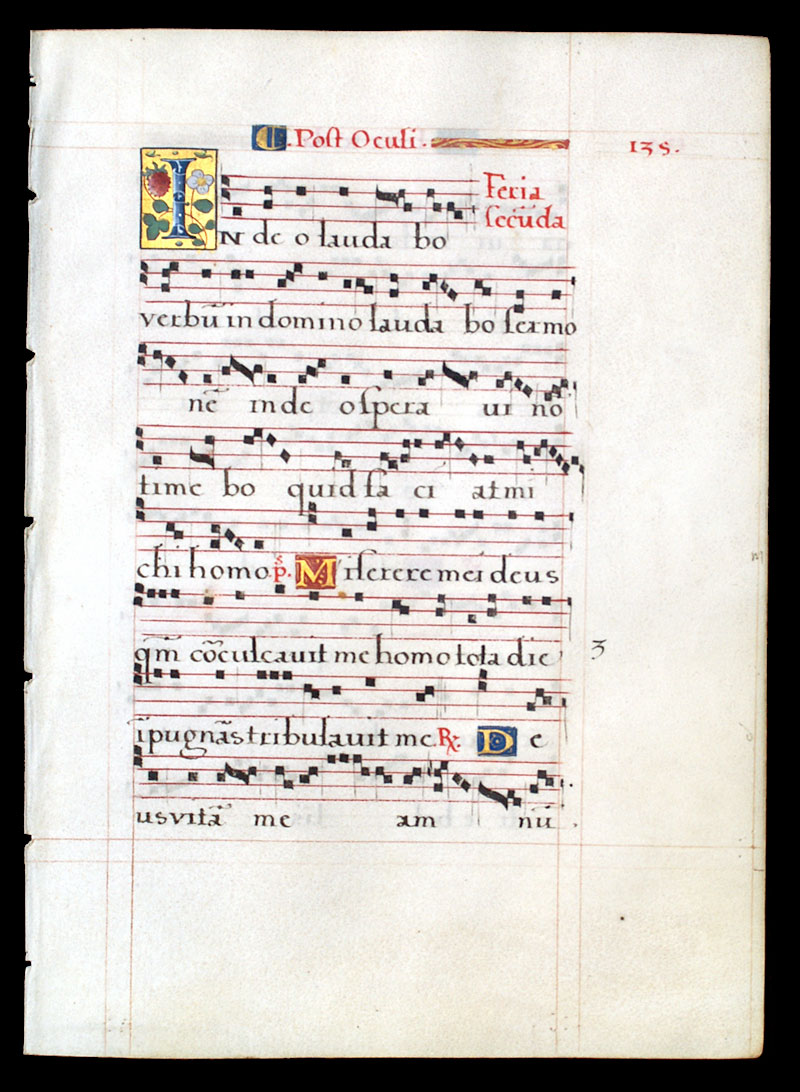 C. Post Oculi.
135.
Feria
secūda
IN de o lauda bo
verbū in domino lauda bo sermo
nē in de o spera vi no
time bo quid fa ci at mi
chi homo p̄s. Miserere mei deus
qm̄ cōculcavit me homo tota die
3
īpugnās tribulavit me. R⁊. De
us vitā me am nū